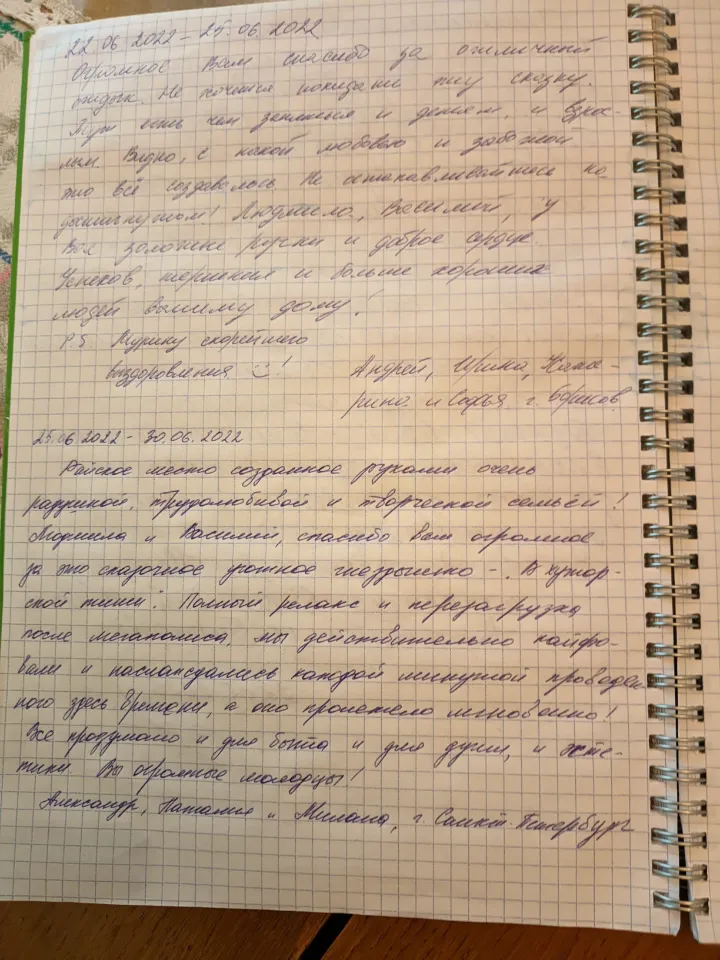 22.06 2022 – 25.06.2022
Огромное Вам спасибо за отличный
отдых. Не хочется покидать эту сказку.
Тут есть чем заняться и детям, и взрос-
лым. Видно, с какой любовью и заботой
это всё создавалось. Не останавливайтесь на
достигнутом! Людмила, Василий, у
Вас золотые ручки и доброе сердце.
Успехов, терпения и больше хороших
людей Вашему дому!
P.S. Мурику скорейшего
выздоровления !
Андрей, Ирина, Кате-
рина и Софья г. Борисов
25.06.2022 – 30.06.2022
Райское место созданное руками очень
радушной, трудолюбивой и творческой семьёй!
Людмила и Василий, спасибо вам огромное
за это сказочное уютное гнездышко – "В хутор-
ской тиши". Полный релакс и перезагрузка
после мегаполиса, мы действительно кайфо-
вали и наслаждались каждой минутой проведен
ного здесь времени, а оно пролетело мгновенно!
Все продумано и для быта и для души, и эсте-
тики. Вы огромные молодцы!
Александр, Наталья и Милана, г. Санкт-Петербург